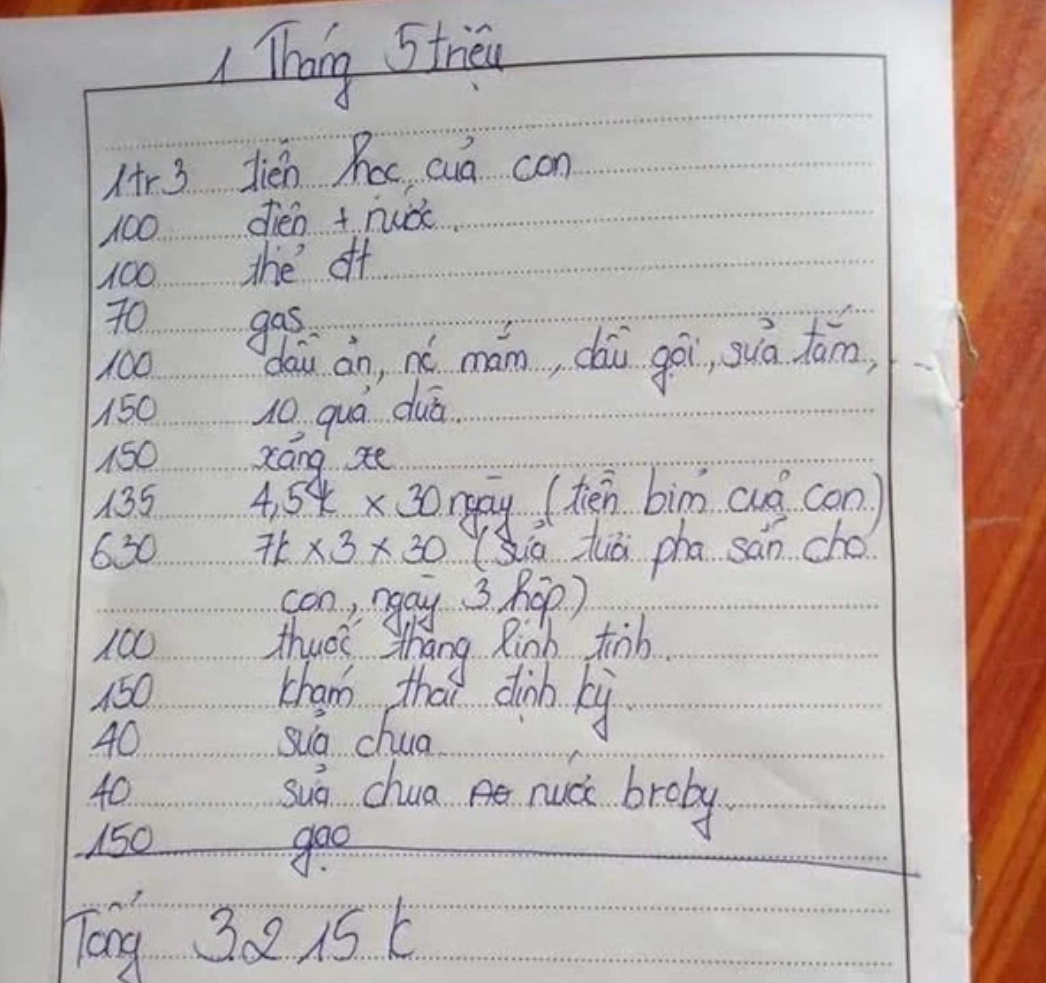 1 Tháng 5 triệu
1tr3 tiền học của con
100 điện + nước.
100 thẻ đt
70 gas
100 dầu ăn, nc mắm, dầu gội, sửa tắm, --
150 10 quả dừa.
150 xăng xe
135 4,5k x 30 ngày (tiền bỉm của con)
630 7k x 3 x 30 (sửa tươi pha sẵn cho
con, ngày 3 hộp)
100 thuốc thang linh tinh.
150 khám thai định kỳ.
40 sửa chua
40 sửa chua nước broby.
150 gạo
Tổng 3.215 k